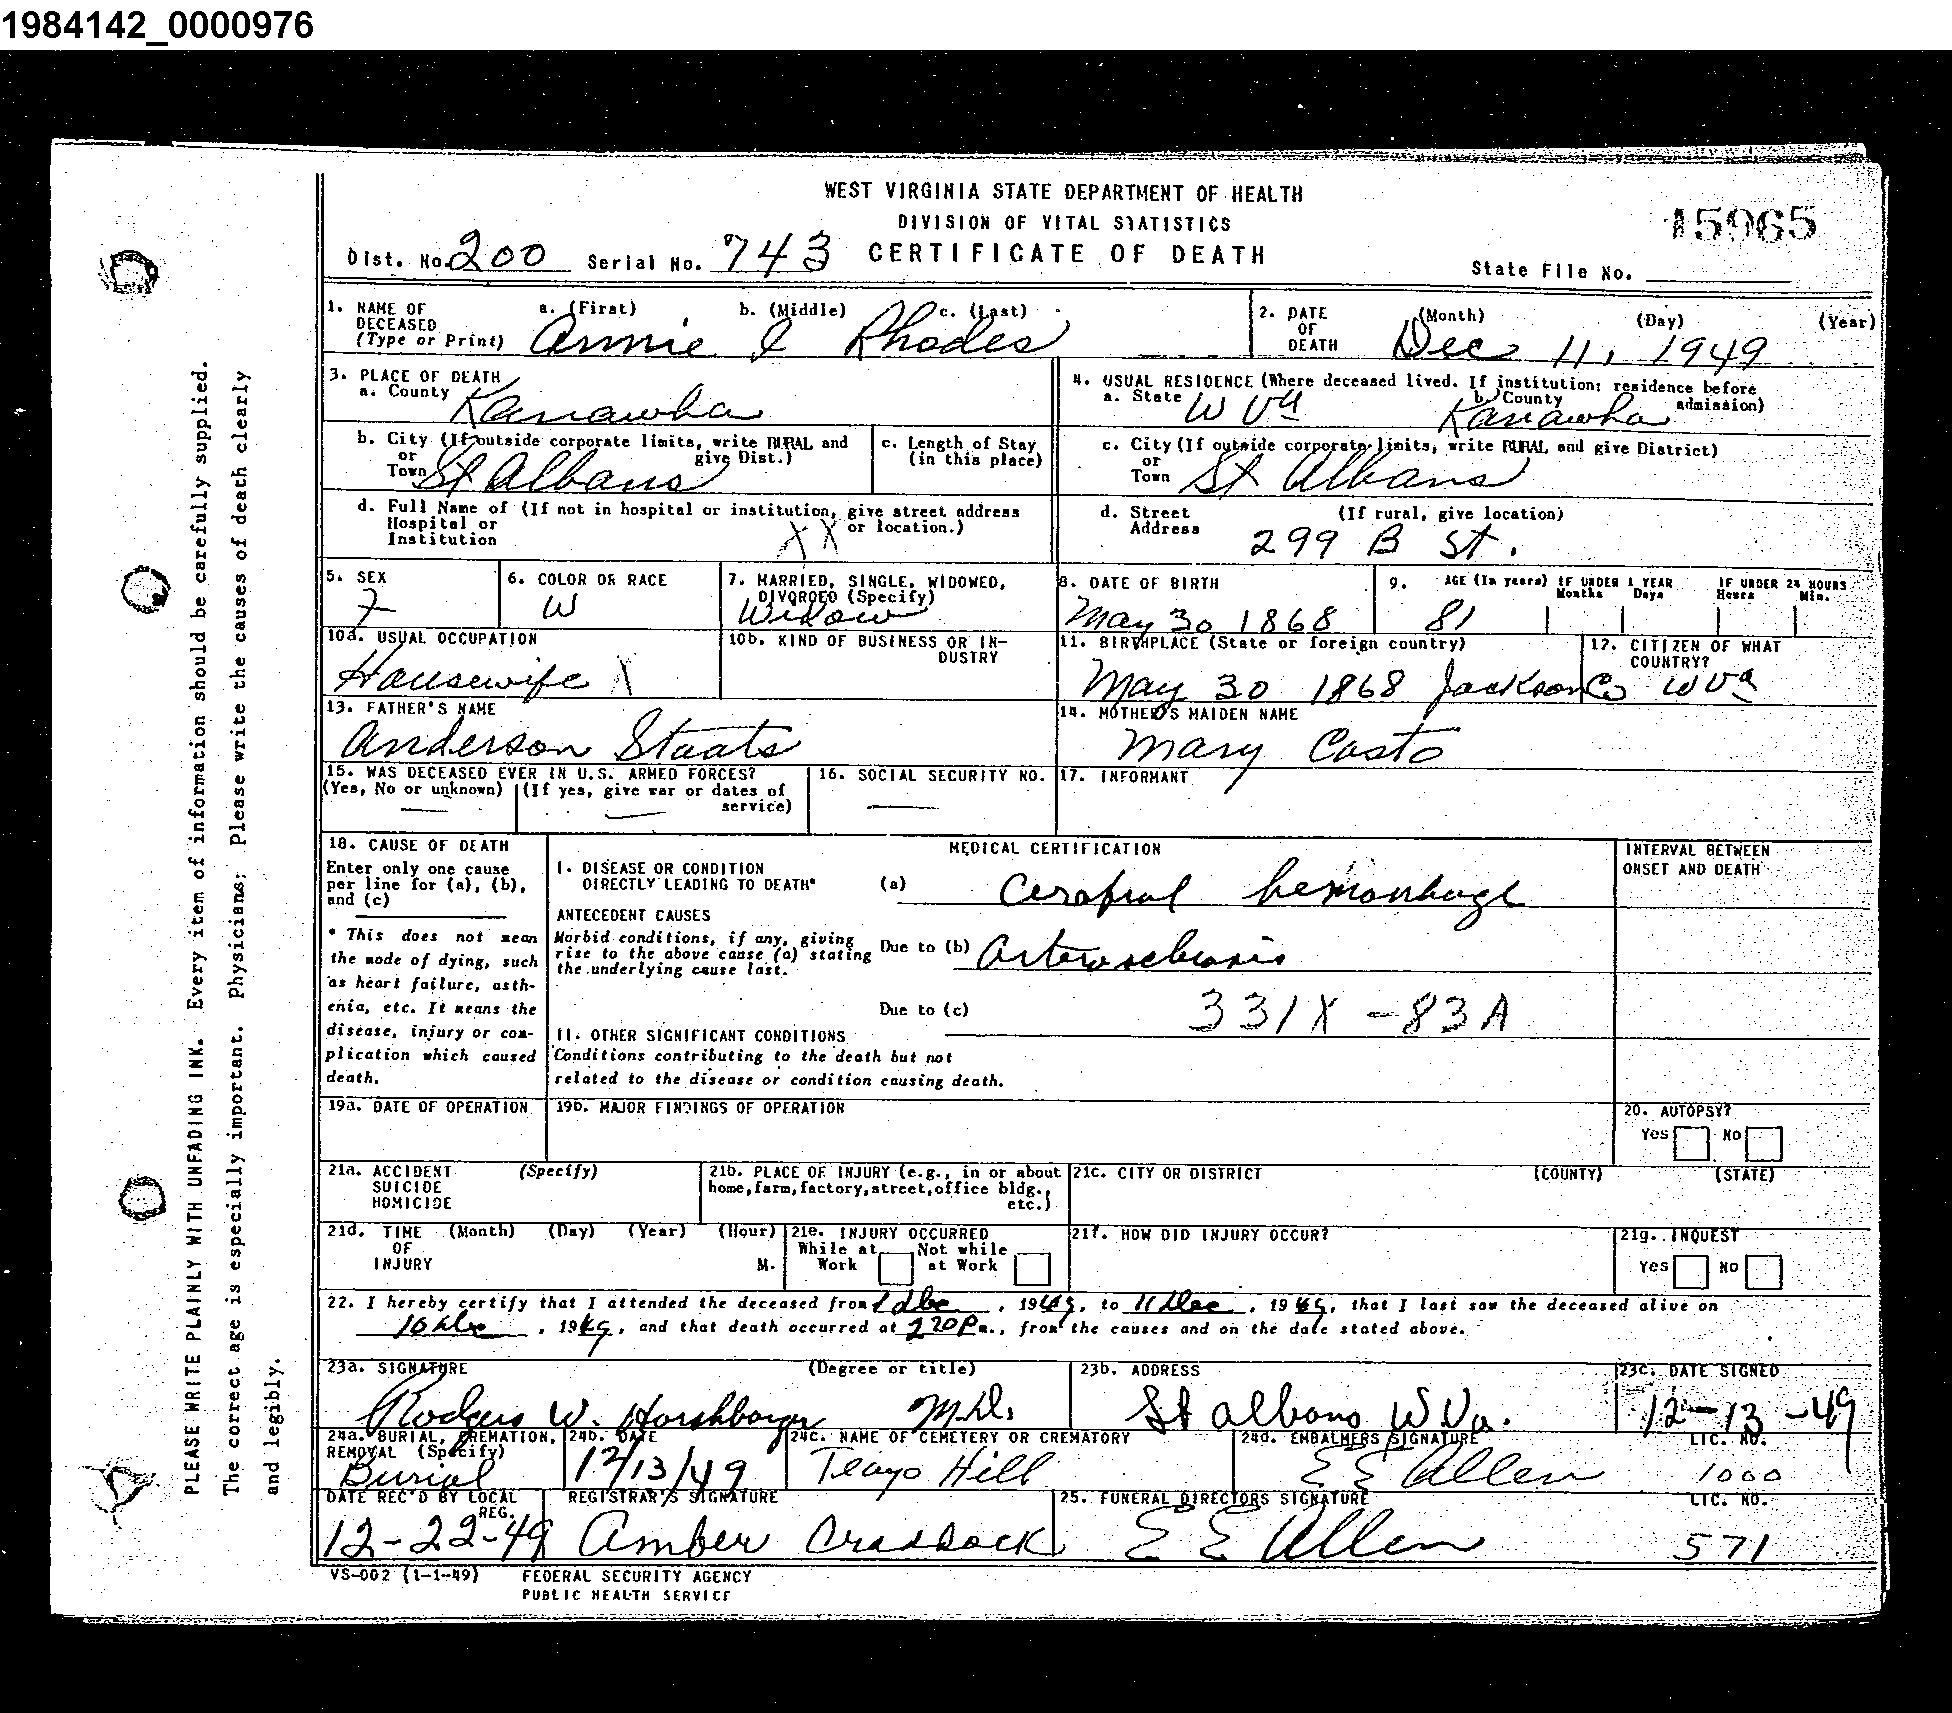 1984142_0000976
WEST VIRGINIA STATE DEPARTMENT OF HEALTH
DIVISION OF VITAL STATISTICS
15965
Dist. No. 200 Serial No. 743 CERTIFICATE OF DEATH
State File No.
1. NAME OF DECEASED (Type or Print) a. (First) b. (Middle) c. (Last)
Annie Rhodes
2. DATE OF DEATH (Month) (Day) (Year)
Dec 11, 1949
3. PLACE OF DEATH
a. County Kanawha
4. USUAL RESIDENCE (Where deceased lived. If institution: residence before admission)
a. State W Va b. County Kanawha
b. City (If outside corporate limits, write RURAL and give Dist.)
or Town St Albans
c. Length of Stay (in this place)
c. City (If outside corporate limits, write RURAL and give District)
or Town St Albans
d. Full Name of (If not in hospital or institution, give street address or location.)
Hospital or Institution XX
d. Street Address (If rural, give location)
299 B St.
5. SEX
F
6. COLOR OR RACE
W
7. MARRIED, SINGLE, WIDOWED, DIVORCED (Specify)
Widow
8. DATE OF BIRTH
May 30 1868
9. AGE (In years) IF UNDER 1 YEAR Months Days IF UNDER 24 HOURS Hours Min.
81
10a. USUAL OCCUPATION
Housewife X
10b. KIND OF BUSINESS OR INDUSTRY
11. BIRTHPLACE (State or foreign country)
12. CITIZEN OF WHAT COUNTRY?
May 30 1868 Jackson Co W Va
13. FATHER'S NAME
Anderson Staats
14. MOTHER'S MAIDEN NAME
Mary Casto
15. WAS DECEASED EVER IN U.S. ARMED FORCES?
(Yes, No or unknown) (If yes, give war or dates of service)
16. SOCIAL SECURITY NO.
17. INFORMANT
18. CAUSE OF DEATH
Enter only one cause per line for (a), (b), and (c)
* This does not mean the mode of dying, such as heart failure, asthenia, etc. It means the disease, injury or complication which caused death.
MEDICAL CERTIFICATION
INTERVAL BETWEEN ONSET AND DEATH
I. DISEASE OR CONDITION DIRECTLY LEADING TO DEATH* (a) Cerebral hemorrhage
ANTECEDENT CAUSES
Morbid conditions, if any, giving rise to the above cause (a) stating the underlying cause last.
Due to (b) Arteriosclerosis
Due to (c)
331X - 83A
II. OTHER SIGNIFICANT CONDITIONS
Conditions contributing to the death but not related to the disease or condition causing death.
19a. DATE OF OPERATION
19b. MAJOR FINDINGS OF OPERATION
20. AUTOPSY?
Yes No
21a. ACCIDENT SUICIDE HOMICIDE (Specify)
21b. PLACE OF INJURY (e.g., in or about home, farm, factory, street, office bldg., etc.)
21c. CITY OR DISTRICT (COUNTY) (STATE)
21d. TIME OF INJURY (Month) (Day) (Year) (Hour) M.
21e. INJURY OCCURRED
While at Work Not while at Work
21f. HOW DID INJURY OCCUR?
21g. INQUEST
Yes No
22. I hereby certify that I attended the deceased from 1 Dec, 1949, to 11 Dec, 1949, that I last saw the deceased alive on
10 Dec, 1949, and that death occurred at 220 P m., from the causes and on the date stated above.
23a. SIGNATURE (Degree or title)
Rodgers W. Harshbarger M.D.
23b. ADDRESS
St Albans W Va.
23c. DATE SIGNED
12-13-49
24a. BURIAL, CREMATION, REMOVAL (Specify)
Burial
24b. DATE
12/13/49
24c. NAME OF CEMETERY OR CREMATORY
Teays Hill
24d. EMBALMERS SIGNATURE LIC. NO.
E E Allen 1000
DATE REC'D BY LOCAL REG.
12-22-49
REGISTRAR'S SIGNATURE
Amber Craddock
25. FUNERAL DIRECTORS SIGNATURE LIC. NO.
E E Allen 571
VS-002 (1-1-49) FEDERAL SECURITY AGENCY
PUBLIC HEALTH SERVICE
PLEASE WRITE PLAINLY WITH UNFADING INK. Every item of information should be carefully supplied.
The correct age is especially important. Physicians: Please write the causes of death clearly
and legibly.